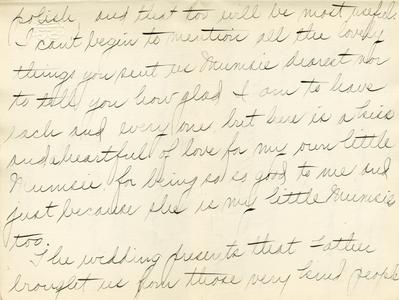 polish, and that too will be most useful.
I cant begin to mention all the lovely
things you sent us Mumsie dearest nor
to tell you how glad I am to have
each and every one but here is a kiss
and a heartful of love for my own little
Mumsie for being so so good to me and
just because she is my little Mumsie
too.
The wedding presents that Father
brought us from those very kind people